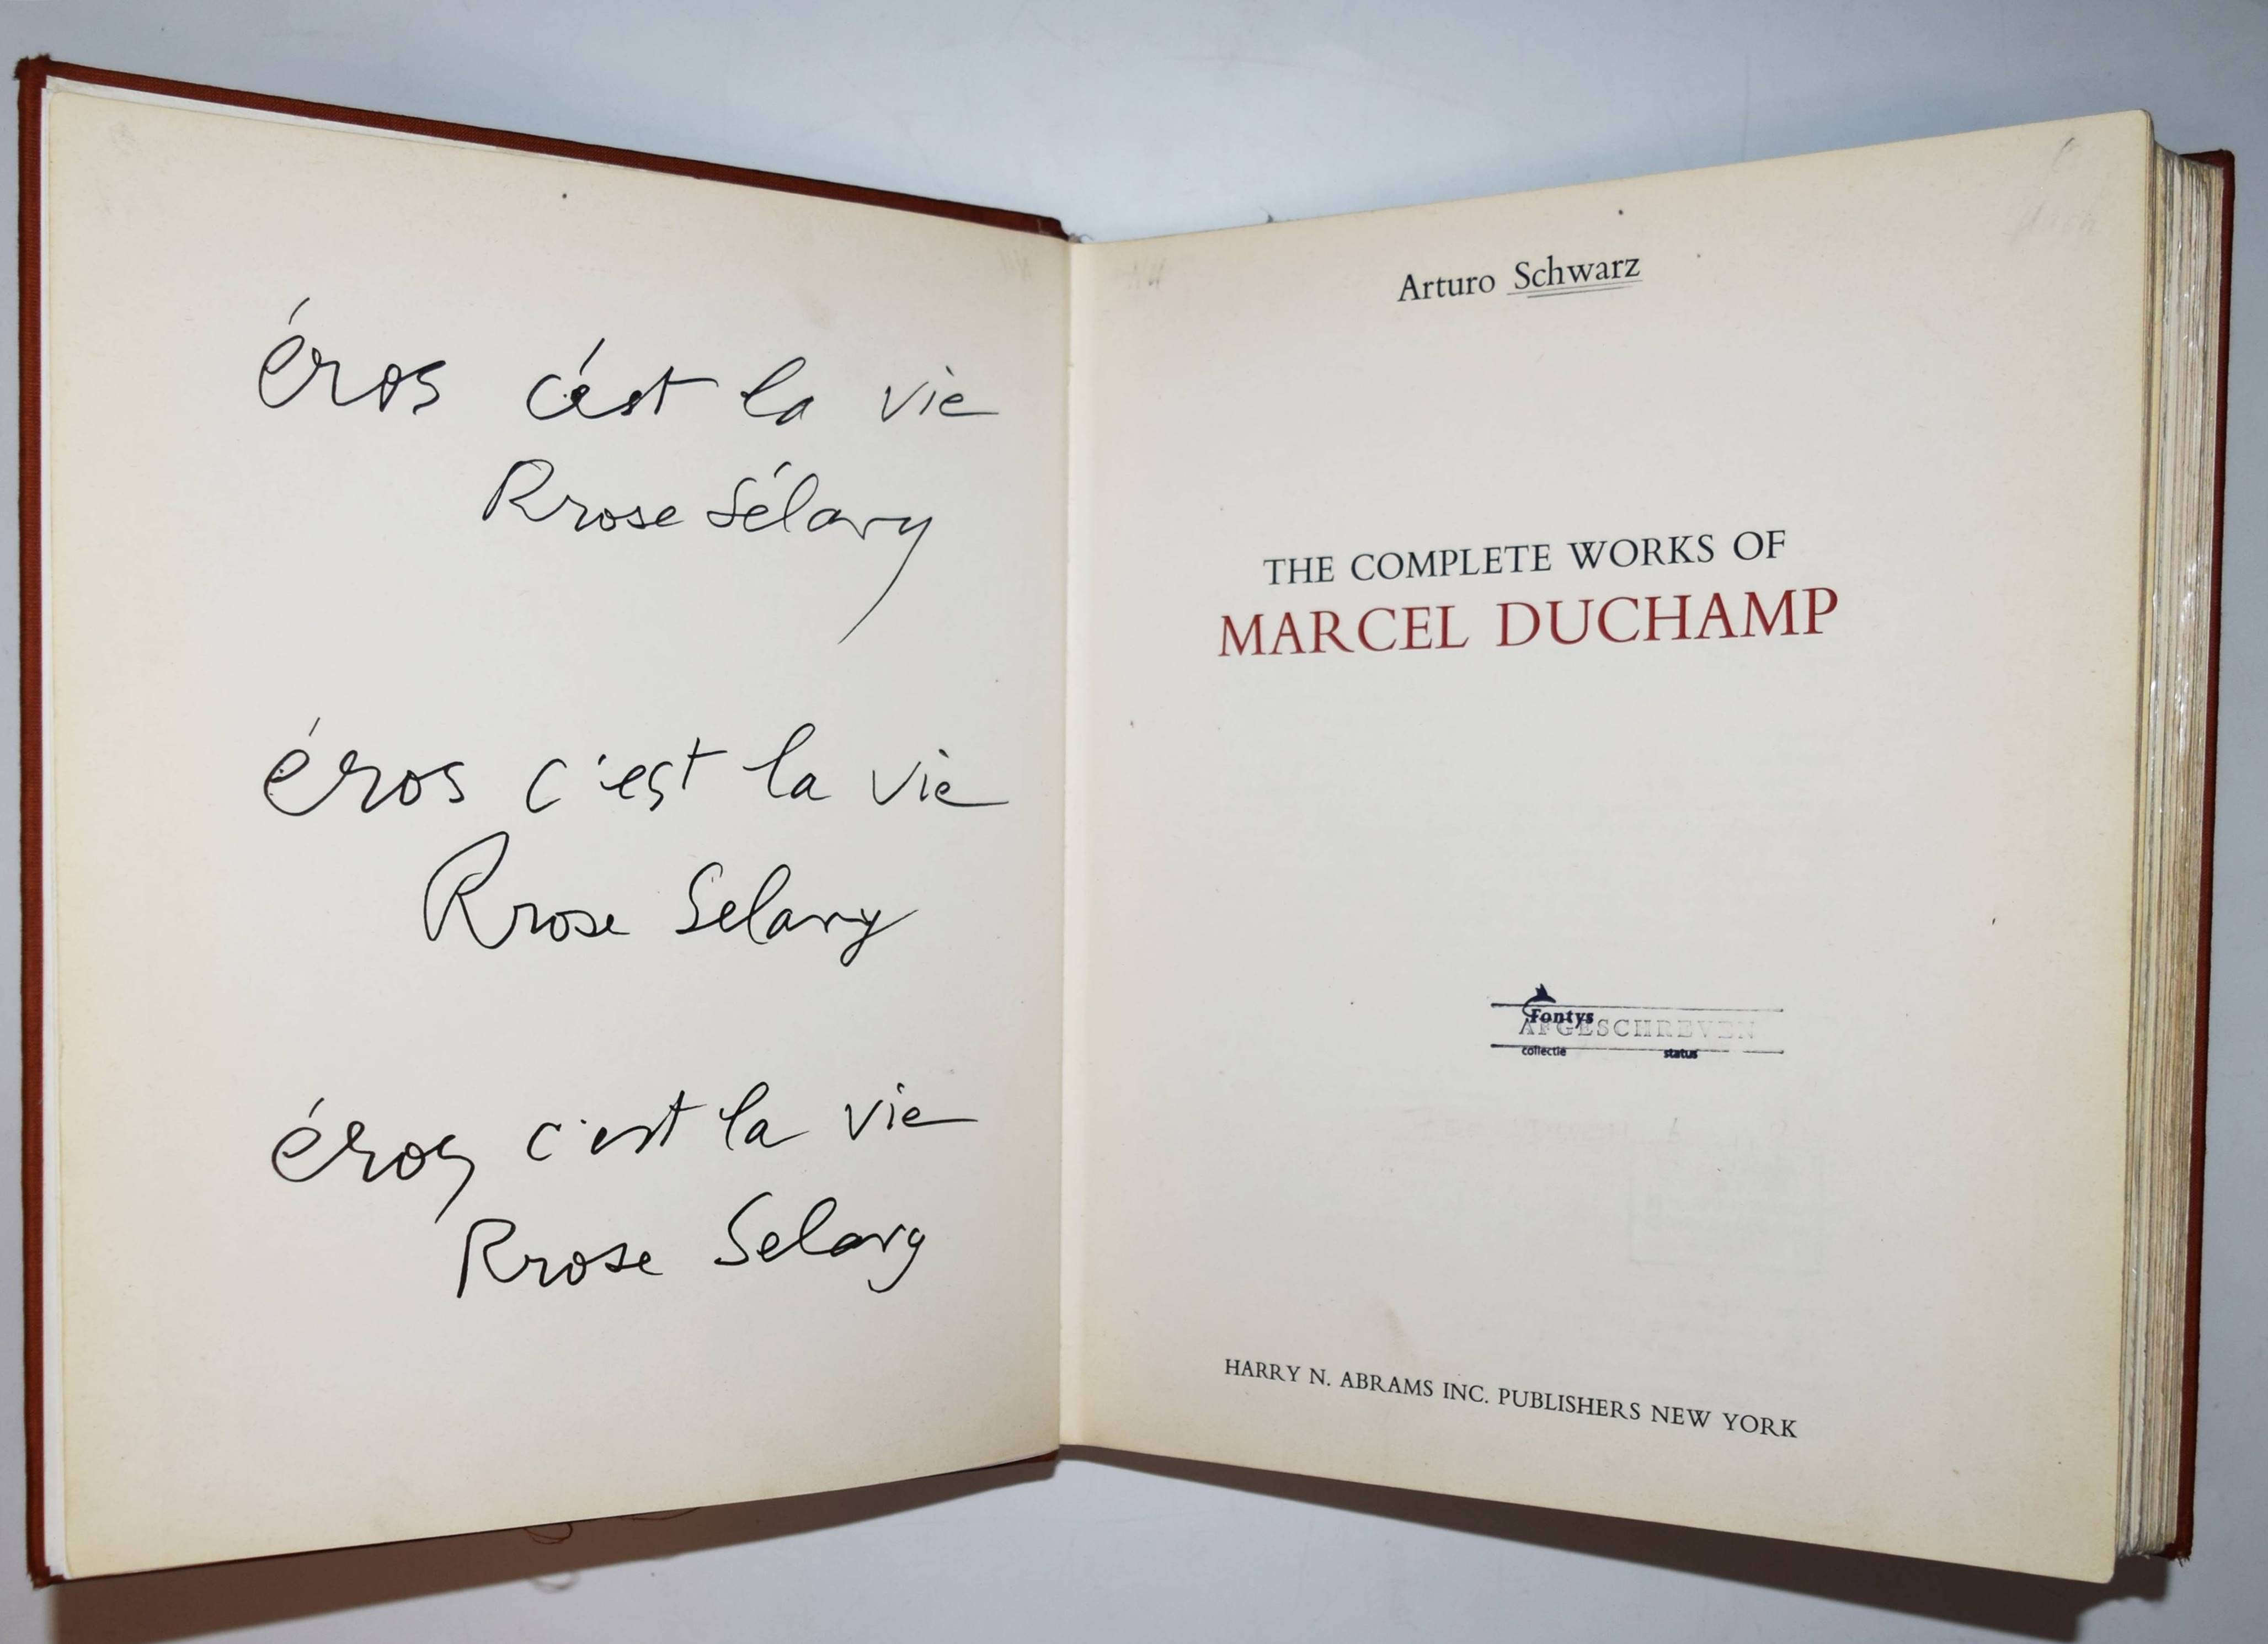 éros c'ést la vie
Rrose Sélavy
éros c'est la vie
Rrose Selavy
éros c'est la vie
Rrose Selavy
Arturo Schwarz
THE COMPLETE WORKS OF
MARCEL DUCHAMP
Fontys
AFGESCHREVEN
collectie status
HARRY N. ABRAMS INC. PUBLISHERS NEW YORK